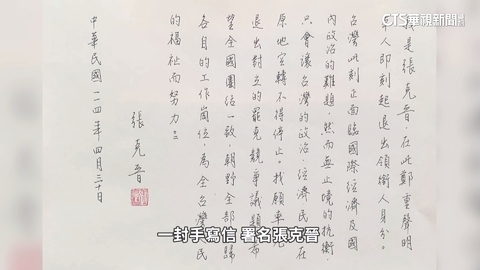 CTS華視新聞
我是張克晉,在此鄭重聲明
本人即刻起退出領銜人身分。
台灣此刻正面臨國際經濟及國
內政治的難題,然而無止境的抗衡,
只會讓台灣的政治、經濟、民生在
原地空轉不得停止。我願率先
退出對立的罷免競爭議題,希
望全國團結一致,朝野全部歸
各自的工作崗位,為全台灣人民
的福祉而努力!!
張克晉
中華民國一一四年四月三十日
一封手寫信 署名張克晉